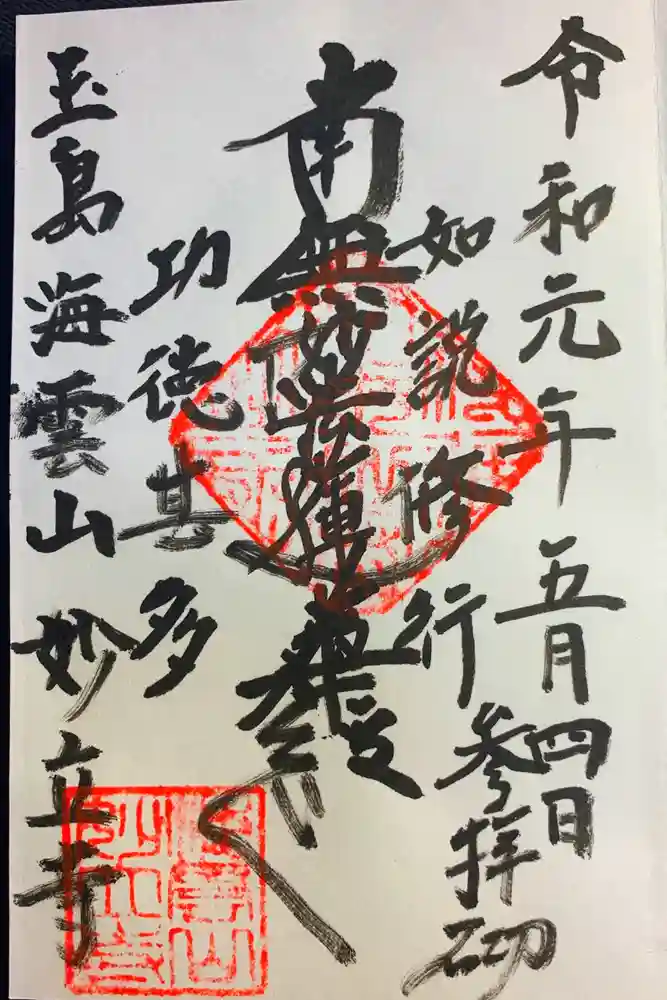 令和元年五月四日
参拝
如説修行
南無妙法蓮華経
功徳甚多
玉島海雲山妙立寺
海雲山
妙立寺